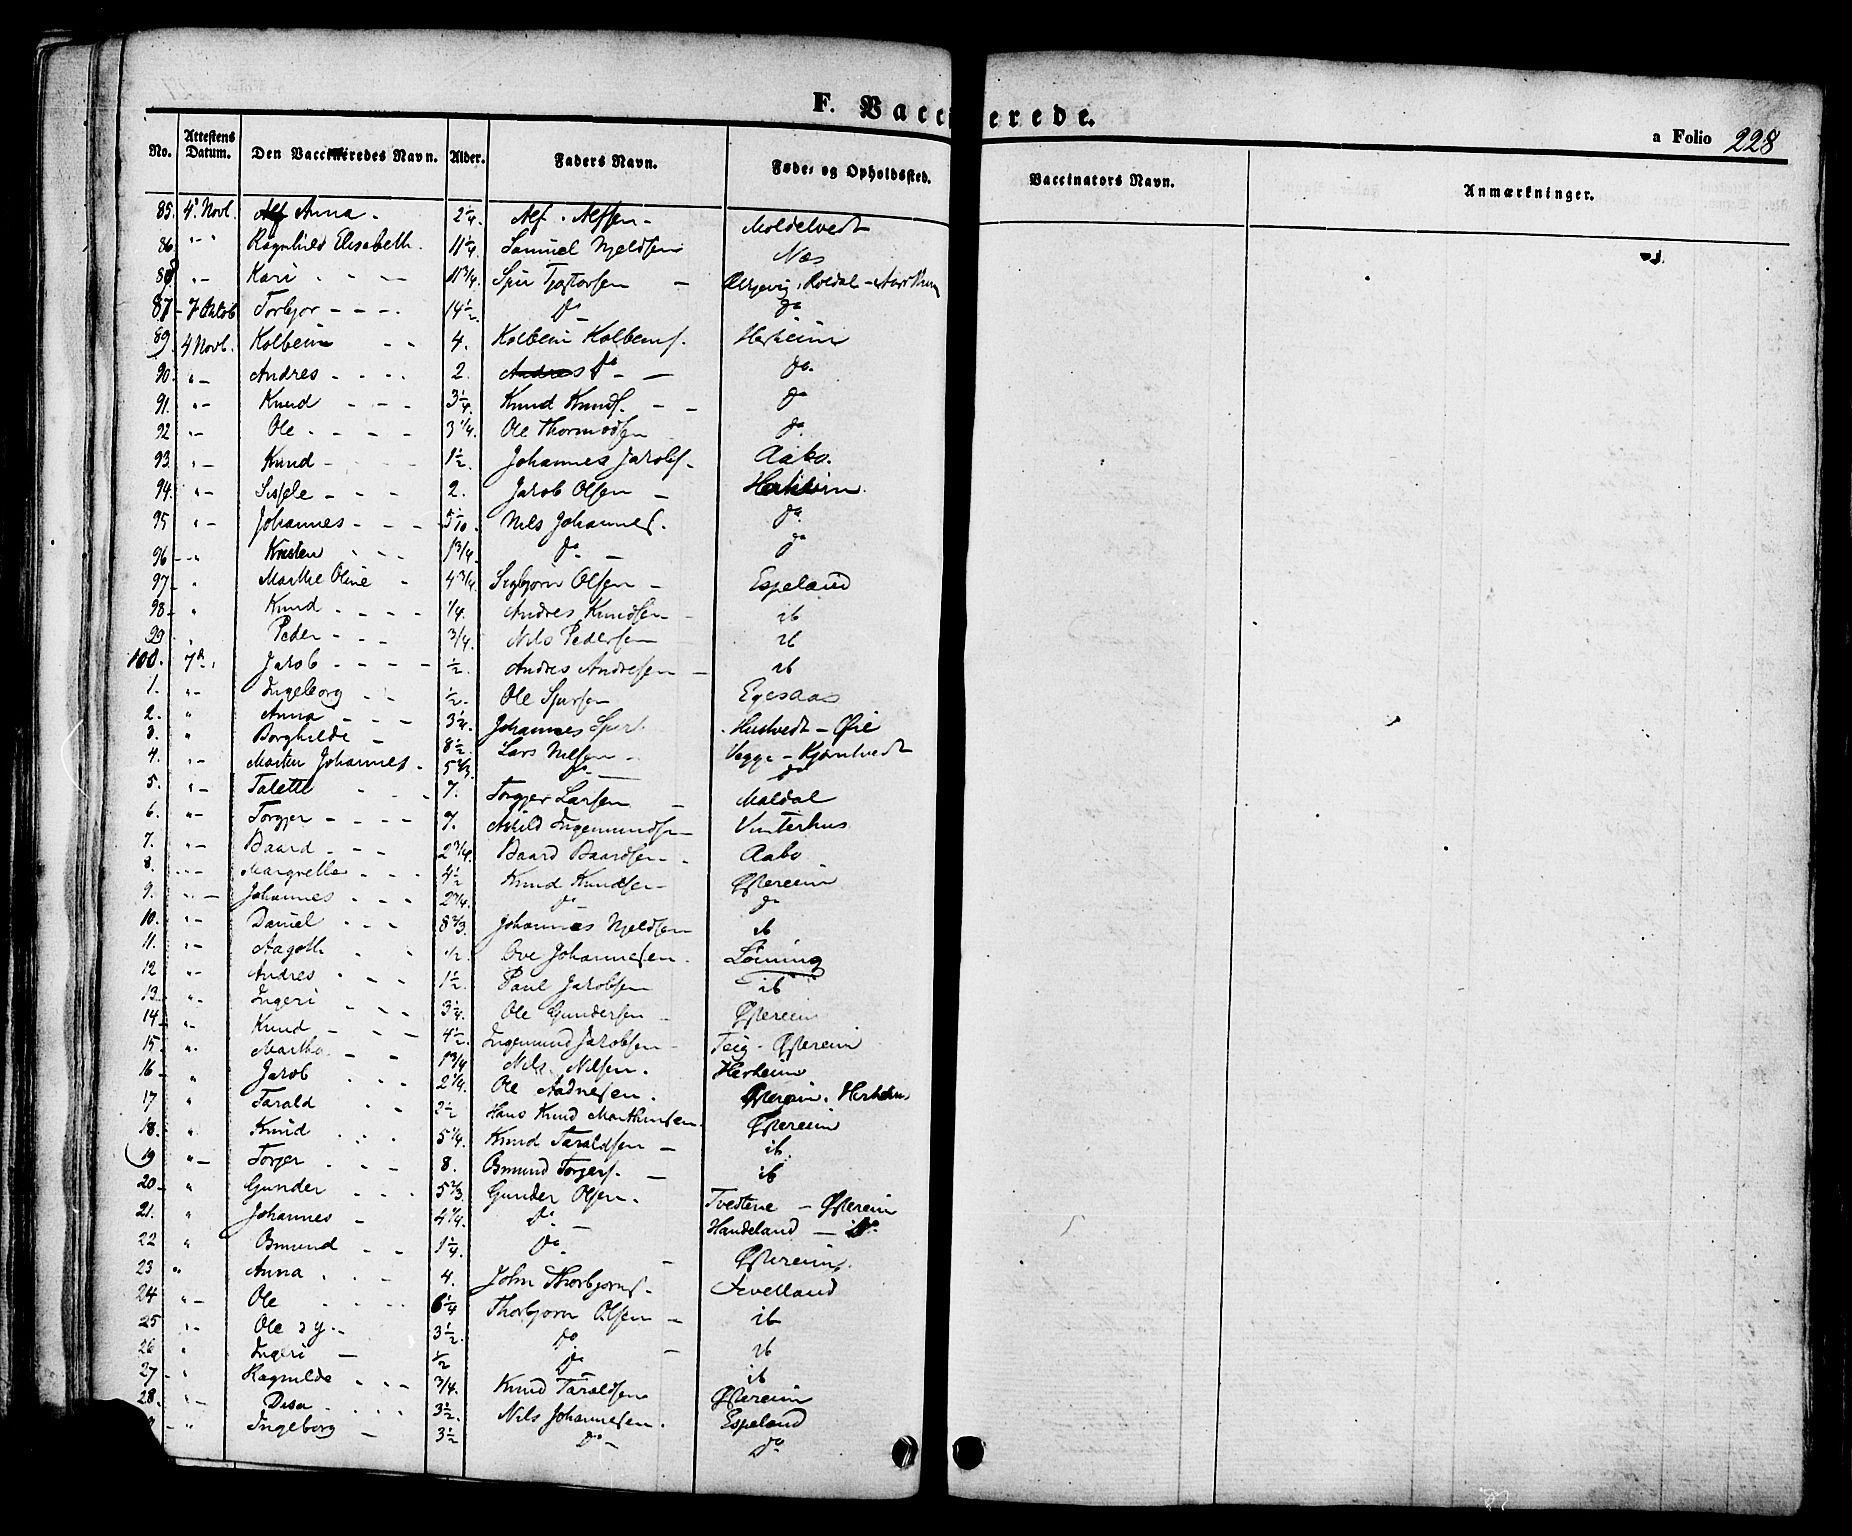 F. Vaccinerede.
a Folio 228
No. Attestens Datum. Den Vaccineredes Navn. Alder. Faders Navn. Føde- og Opholdssted. Vaccinators Navn. Anmærkninger.
85. 4 Novb. Anna 2 1/4. Moldelvedt
86 Ragnhild Elisabeth. 11 1/4. Samuel Njeldsen Næs
Kari 11 3/4.
87 7 Oktob Torbjør 14 1/2. do do
89 4 Novb. Kolbein 4. Kolbein Kolbeins. Herheim
90. Andres 2. do do.
91. Knud 3 1/4. Knud Knuds. do
92 Ole 3 1/4. Ole Thormodsen do.
93. Knud 1 1/2. Johannes Jacobs. Aabo.
94. Sissele 2. Jacob Olsen Herheim
95 Johannes 5/10. Nils Johannes. do.
96 Kristen 1 3/4. do do
97 Marthe Oline 4 3/4. Sigbjørn Olsen Espeland
98 Knud 1/4. Andres Knudsen ib
99 Peder 3/4. Nils Pedersen ib
100. 7 Jacob 1/2. Andres Andresen ib
1. Ingeborg 1/2. Ole Sjursen Egesaas
2. Anna 3 1/4. Johannes Sjurs. Hustvedt - Øie
3. Borghilde 8 1/2. Lars Nilsen Vegge - Kjørnlvedt
4. Martin Johannes. 5 2/3. do do
5. Talette 7. Torgjer Larsen Moldal
6. Torgjer 9. Askild Ingemundsen Vinterhus
7. Baard 2 3/4. Baard Baardsen Aabo
8. Margrethe 4 1/2 Knud Knudsen Østerein
9. Johannes 2 3/4. do do
10. Daniel 8 2/3. Johannes Njeldsen ib
11. Aagoth 1/2 Ove Johannesen. Løining
12 Andres 1 1/2. Paul Jacobsen ib
13 Ingeri 3 1/4. Ole Gundersen Østerein
14 Knud 4 1/2. Ingemund Jacobsen Teig - Østerein
15 Martha 1 3/4 Nils Nilsen. Herheim
16 Jacob 2 1/4. Ole Aadnesen. Østerein. Herheim
17 Tarald 2 1/2 Hans Knud Marthinsen. Østerein
18. Knud 5 1/4. Knud Taraldsen ib.
19 Torger 8. Osmund Torgers. ib
20 Gunder 5 2/3. Gunder Olsen. Tvedtene - Østerein
21. Johannes 4 1/4. do. Handeland - do
22 Osmund 1 1/4. do. Østerein
23 Anna 4. John Thorbjørns. Tvelland
24 Ole 6 1/4 Thorbjørn Olsen ib
25 Ole d y. 3 1/2. do ib
26 Ingeri 1/2 do ib
27 Ragnilde 3/4. Knud Taraldsen Østerein
28. Disa 3 1/2. Nils Johannesen. Espeland
Ingeborg 3 1/2 do do